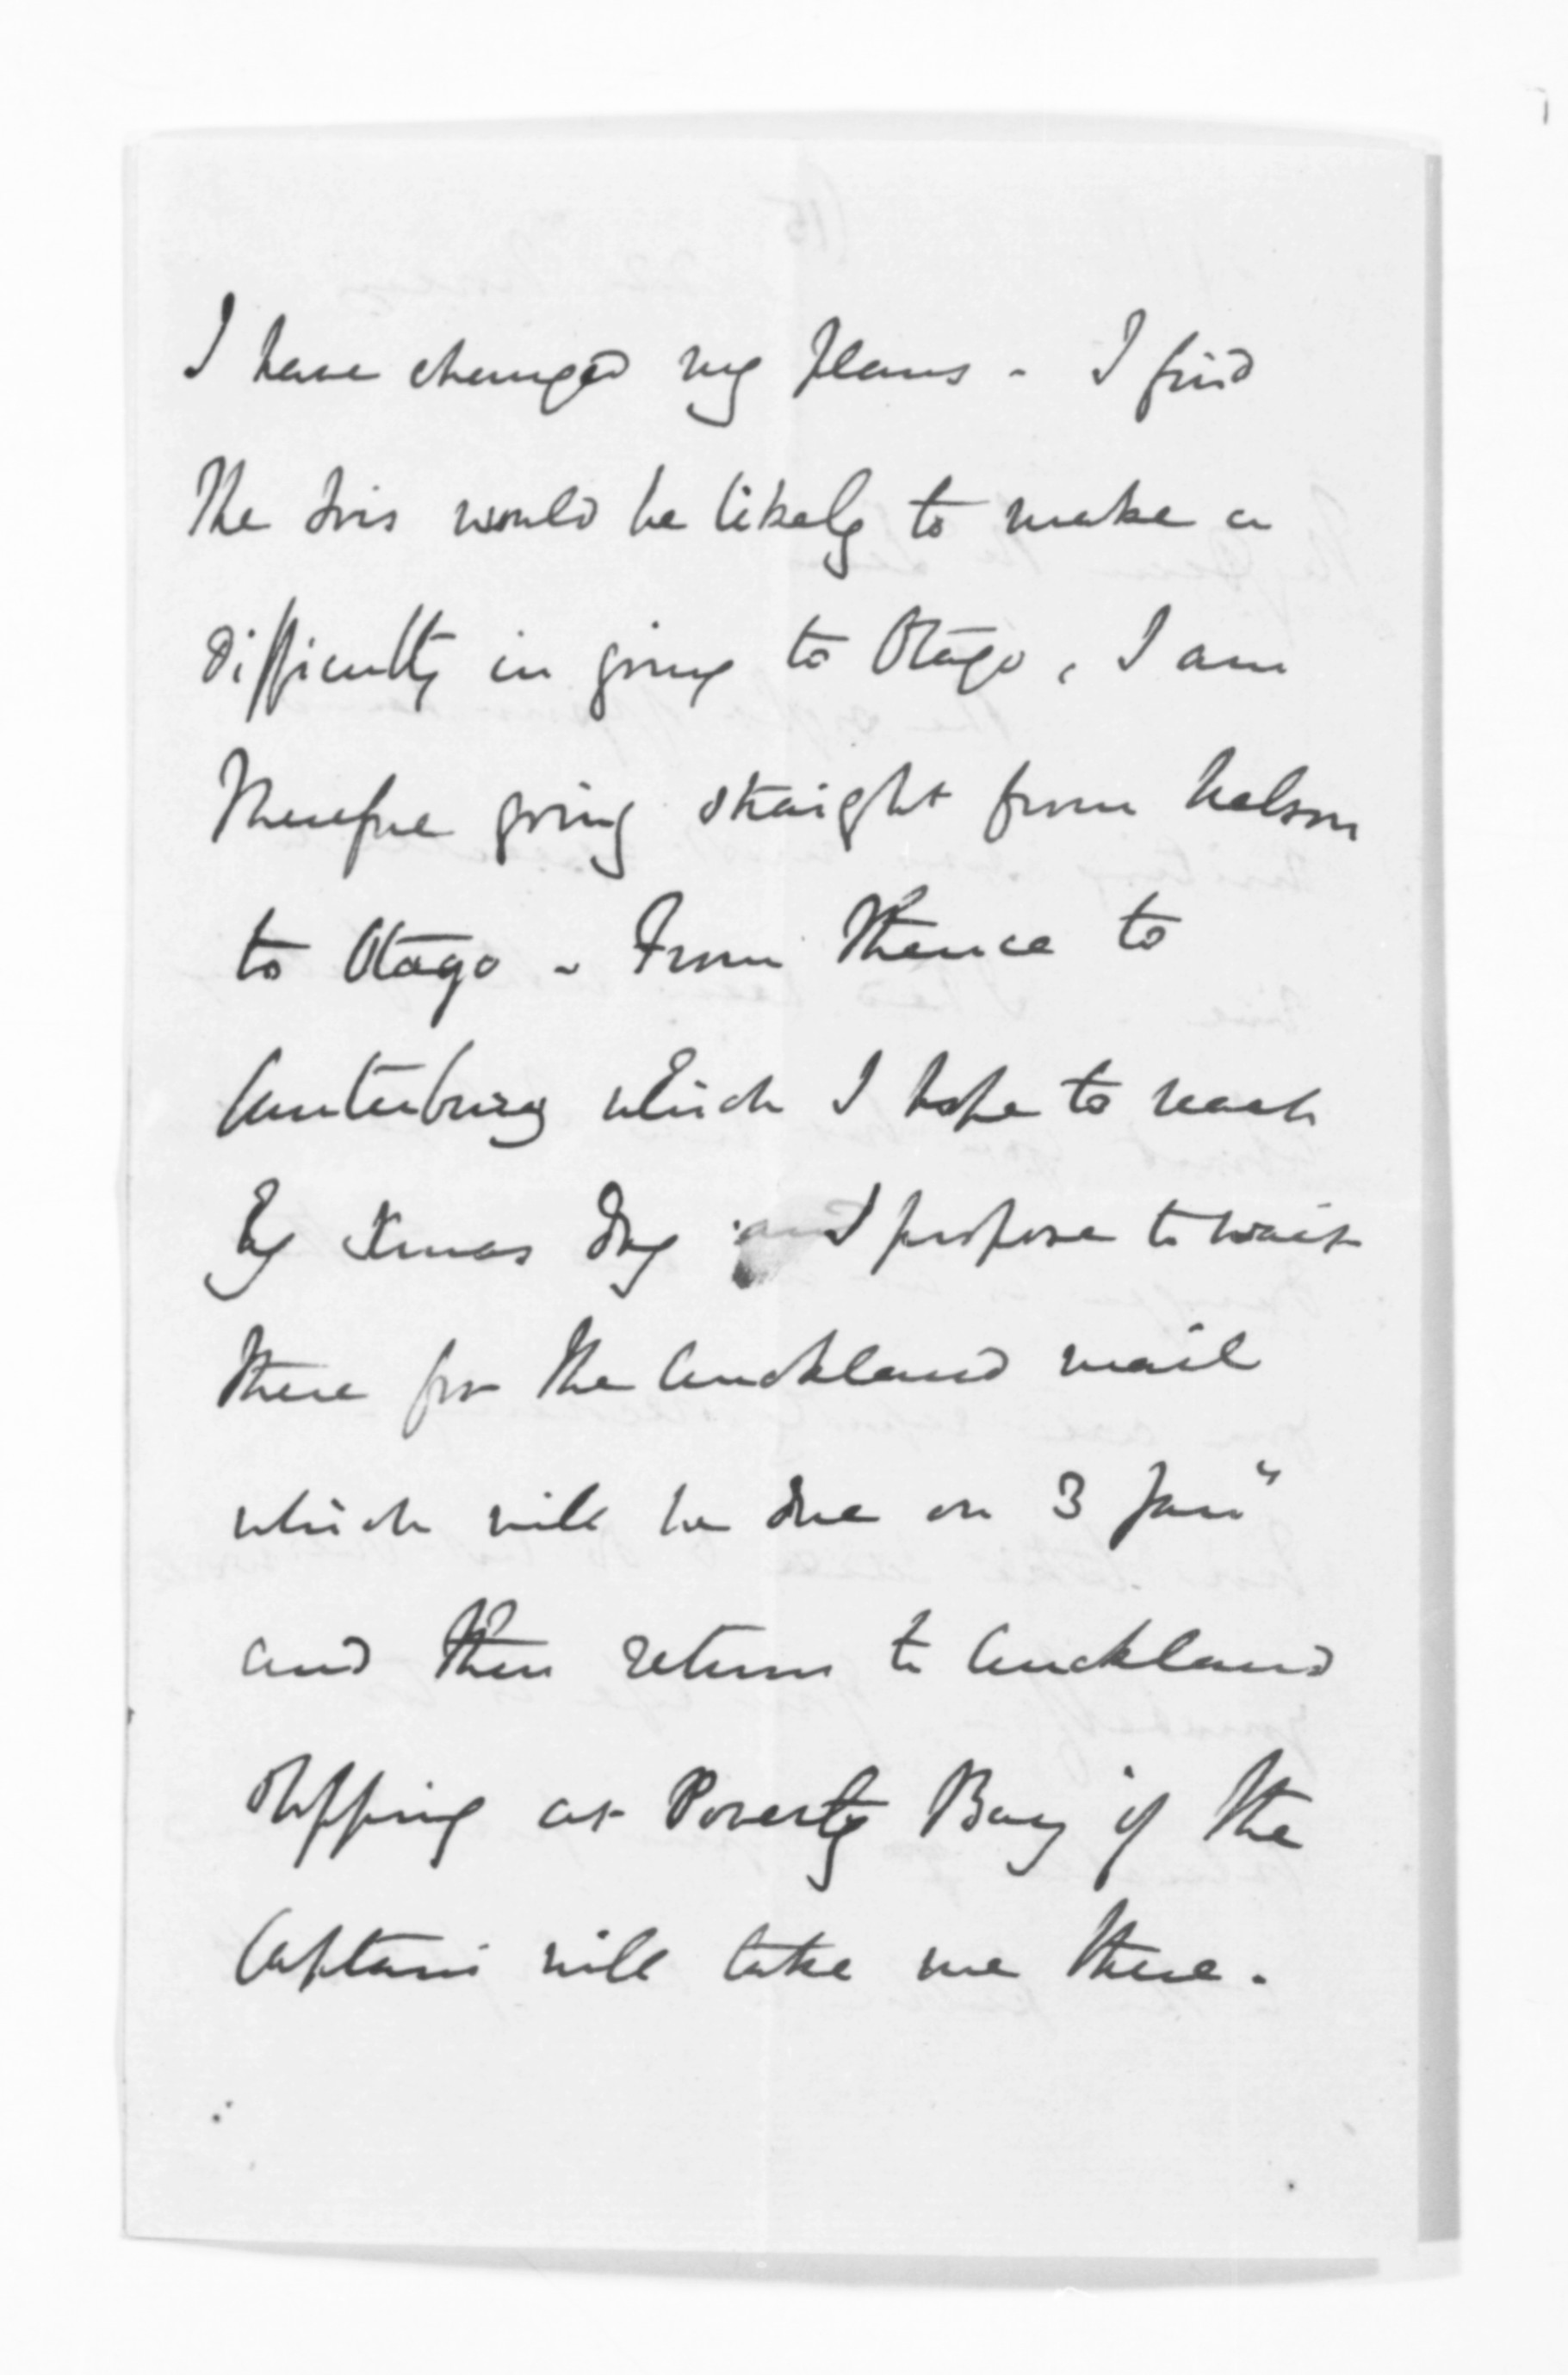 I have changed my plans - I find
the Iris would be likely to make a
difficulty in going to Otago, I am
therefore going straight from Nelson
to Otago - From thence to
Canterbury which I hope to reach
by Xmas day and I propose to wait
there for the Auckland mail
which will be due on 3 Jany
and then return to Auckland
stopping at Poverty Bay if the
Captain will take me there.